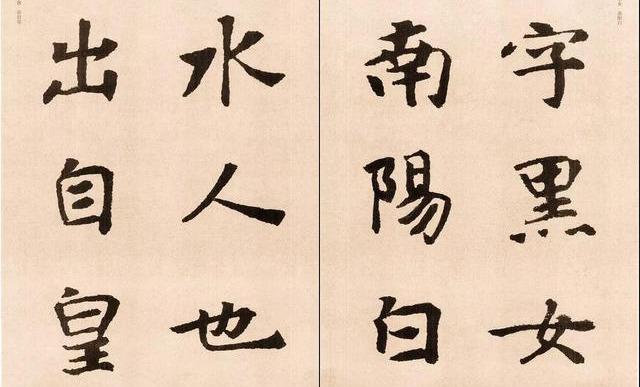 字黑女
南陽白
水人也
出自皇